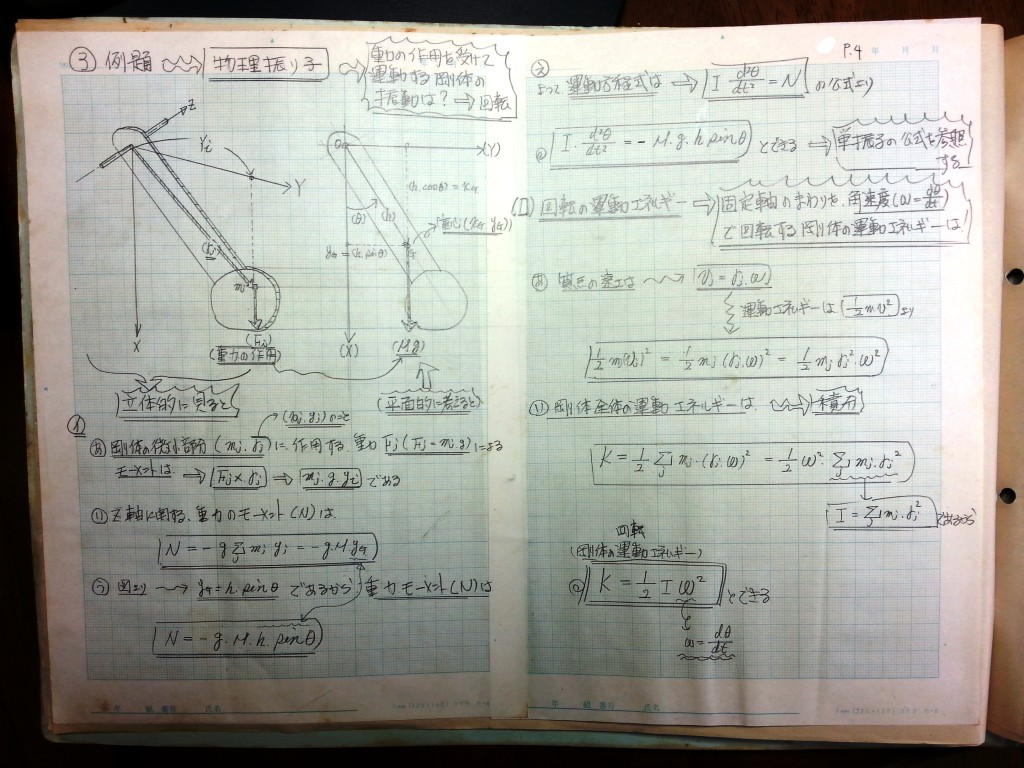 ③ 例題 → 物理振り子 → 重力の作用を受けて
運動する剛体の
振動は? → 回転
Z
Yi
Y
(rj)
mj
X
(Fj)
(重力の作用)
立体的に見ると
(Y)
(h.cosθ) = xG
(θ)
(h)
重心(xG yG)
yG = (h.sinθ)
G
(X)
(Mg)
(平面的に考えると)
→ (xj.yj)のこと
あ 剛体の微小部分 (mj.rj)に作用する、重力 Fj (Fj = mj.g)による
モーメントは → Fj × rj → mj.g.yi である
い Z軸に関する、重力のモーメント(N)は
N = -g Σj mj yj = -g.M.yG
う 図より → yG = h.sinθ であるから 重力モーメント(N)は
N = -g.M.h.sinθ
年 組 番号 氏名
P.4 年 月 日
え
よって 運動方程式は → I d²θ/dt² = N の公式より
◎ I. d²θ/dt² = -M.g.h.sinθ とできる → 単振子の公式を参照
する
(II) 回転の運動エネルギー → 固定軸のまわりを、角速度(ω = dθ/dt)
で回転する剛体の運動エネルギーは
あ 質点の速度は → vj = rj.ω
運動エネルギーは (1/2 mv²) より
1/2 mj(vj)² = 1/2 mj (rj.ω)² = 1/2 mj rj².ω²
い 剛体全体の運動エネルギーは → 積分
K = 1/2 Σj mj.(rj.ω)² = 1/2 ω². Σj mj.rj²
I = Σj mj.rj² であるから
回転
(剛体の運動エネルギー)
◎ K = 1/2 I (ω)² とできる
ω = dθ/dt
年 組 番号 氏名